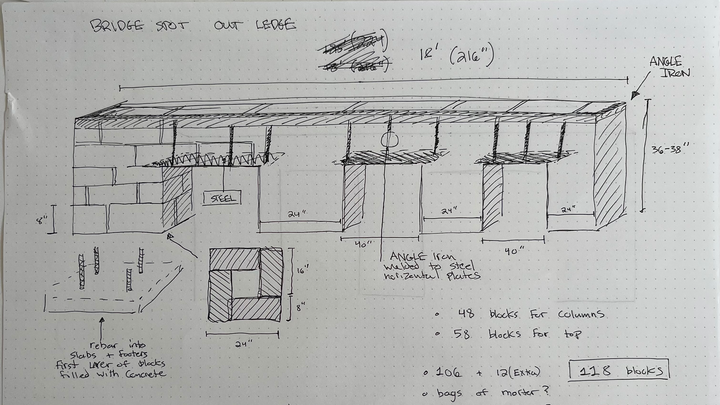 BRIDGE SPOT OUT LEDGE
18' (216")
ANGLE
IRON
36-38"
8"
STEEL
24"
24"
24"
40"
40"
ANGLE Iron
welded to steel
horizontal plates
16"
8"
24"
rebar into
slabs + footers
first layer of blocks
filled with concrete
• 48 blocks for columns
• 58 blocks for top
• 106 + 12(Extra) 118 blocks
• bags of morter?